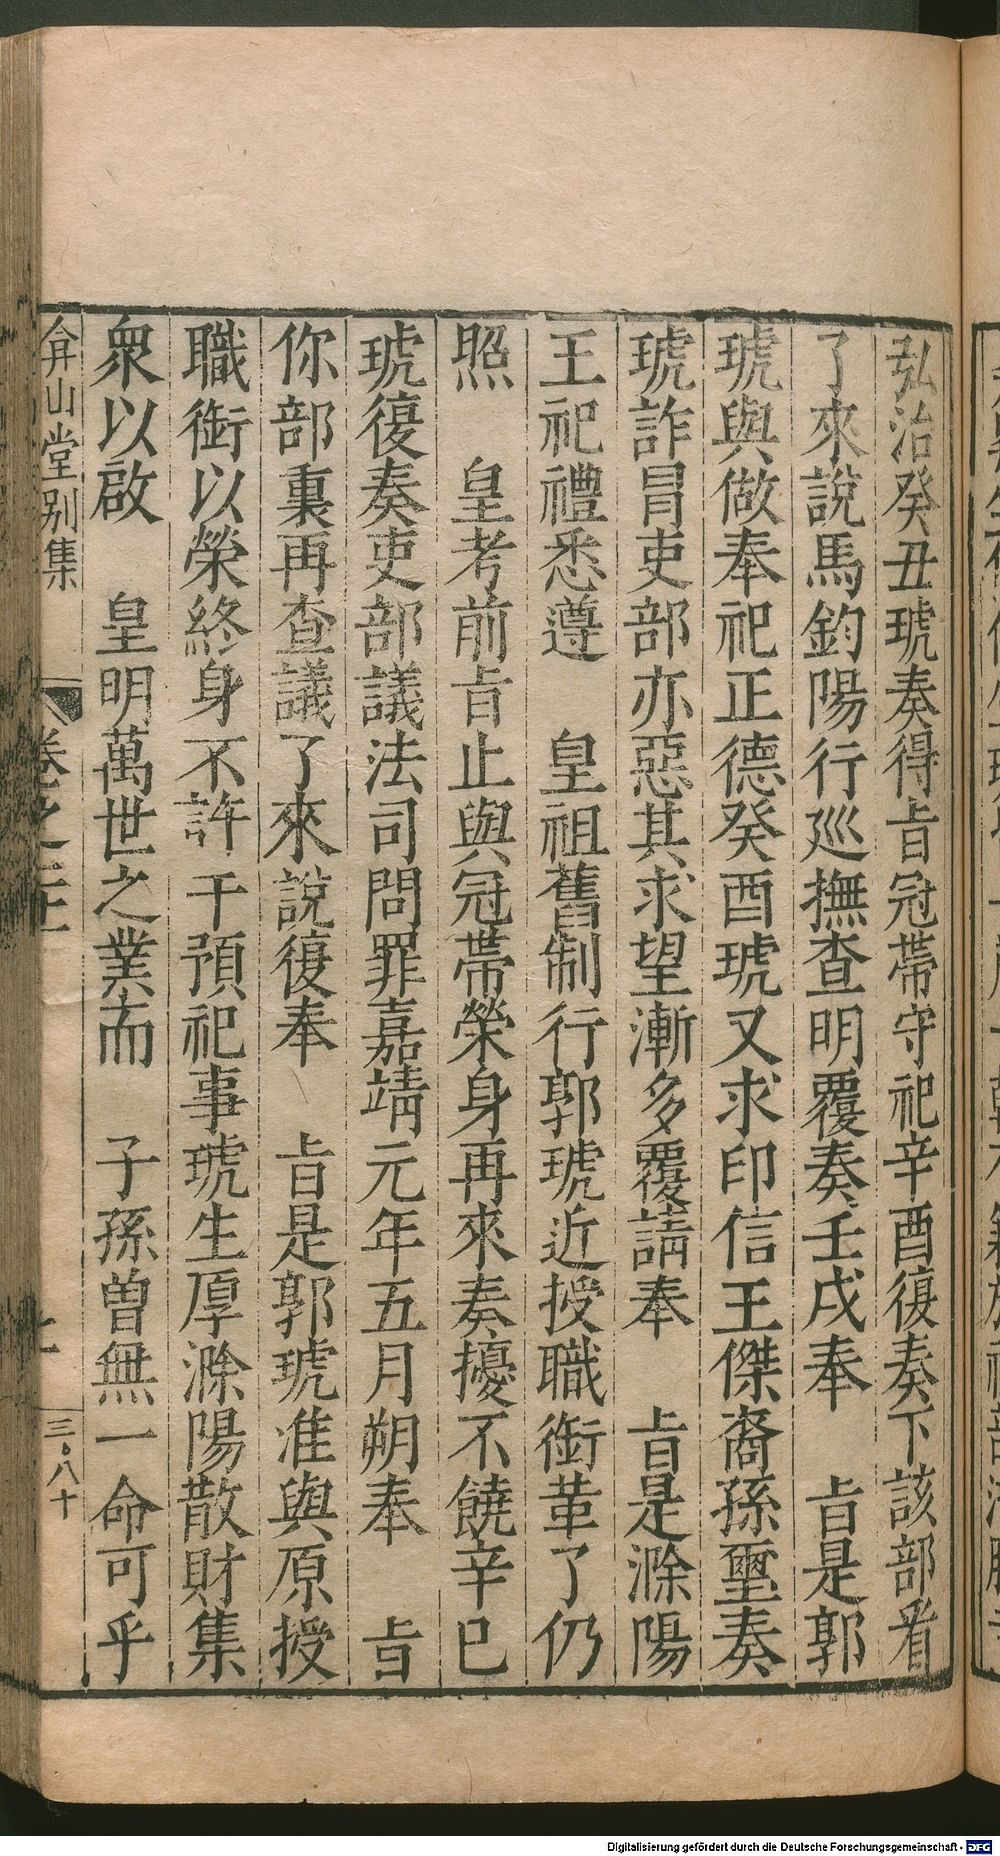 弘治癸丑琥奏得㫖冠帶守祀辛酉復奏下該部看
了來說馬鈞陽行廵撫查明覆奏壬戌奉　㫖是郭
琥與做奉祀正德癸酉琥又求印信王傑裔孫璽奏
琥詐冒吏部亦惡其求望漸多覆請奉　㫖是滁陽
王祀禮悉遵　皇祖舊制行郭琥近授職銜革了仍
照　皇考前㫖止與冠帶榮身再來奏擾不饒辛巳
琥復奏吏部議法司問罪嘉靖元年五月朔奉　㫖
你部裏再查議了來說復奉　㫖是郭琥准與原授
職銜以榮終身不許干預祀事琥生厚滁陽散財集
衆以啟　皇明萬世之業而　子孫曾無一命可乎
弇山堂别集
卷之
三·八十
Digitalisierung gefördert durch die Deutsche Forschungsgemeinschaft - DFG